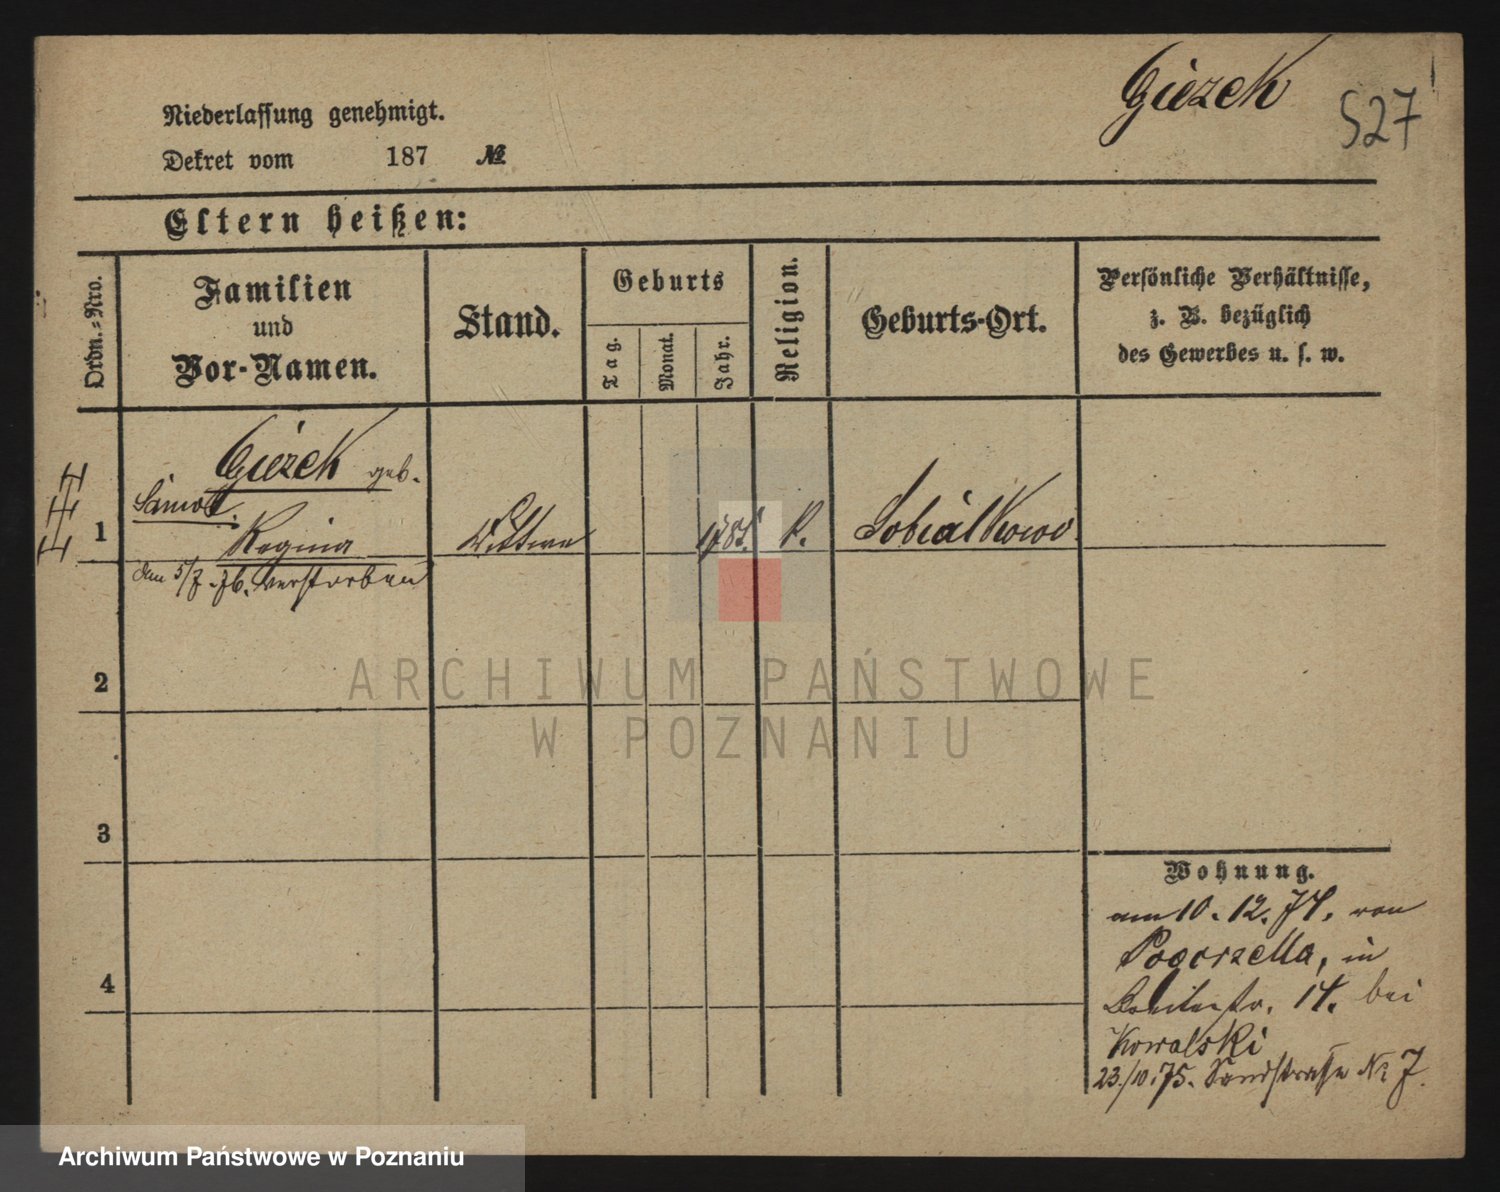 Giezek
527
Niederlassung genehmigt.
Dekret vom 187 №
Eltern heißen:
Ordn.-Nro.
Familien
und
Vor-Namen.
Stand.
Geburts
Tag.
Monat.
Jahr.
Religion.
Geburts-Ort.
Persönliche Verhältnisse,
z. B. bezüglich
des Gewerbes u. s. w.
Giezek geb.
1 Regina Wittwe K. Sobialkowo
den 5/7. 76. verstorben
2
3
4
Wohnung.
am 10. 12. 74. von
Pogorzella, in
14. bei
Kowalski
23./10.75. Sandstraße Nr 7.
ARCHIWUM PAŃSTWOWE
W POZNANIU
Archiwum Państwowe w Poznaniu